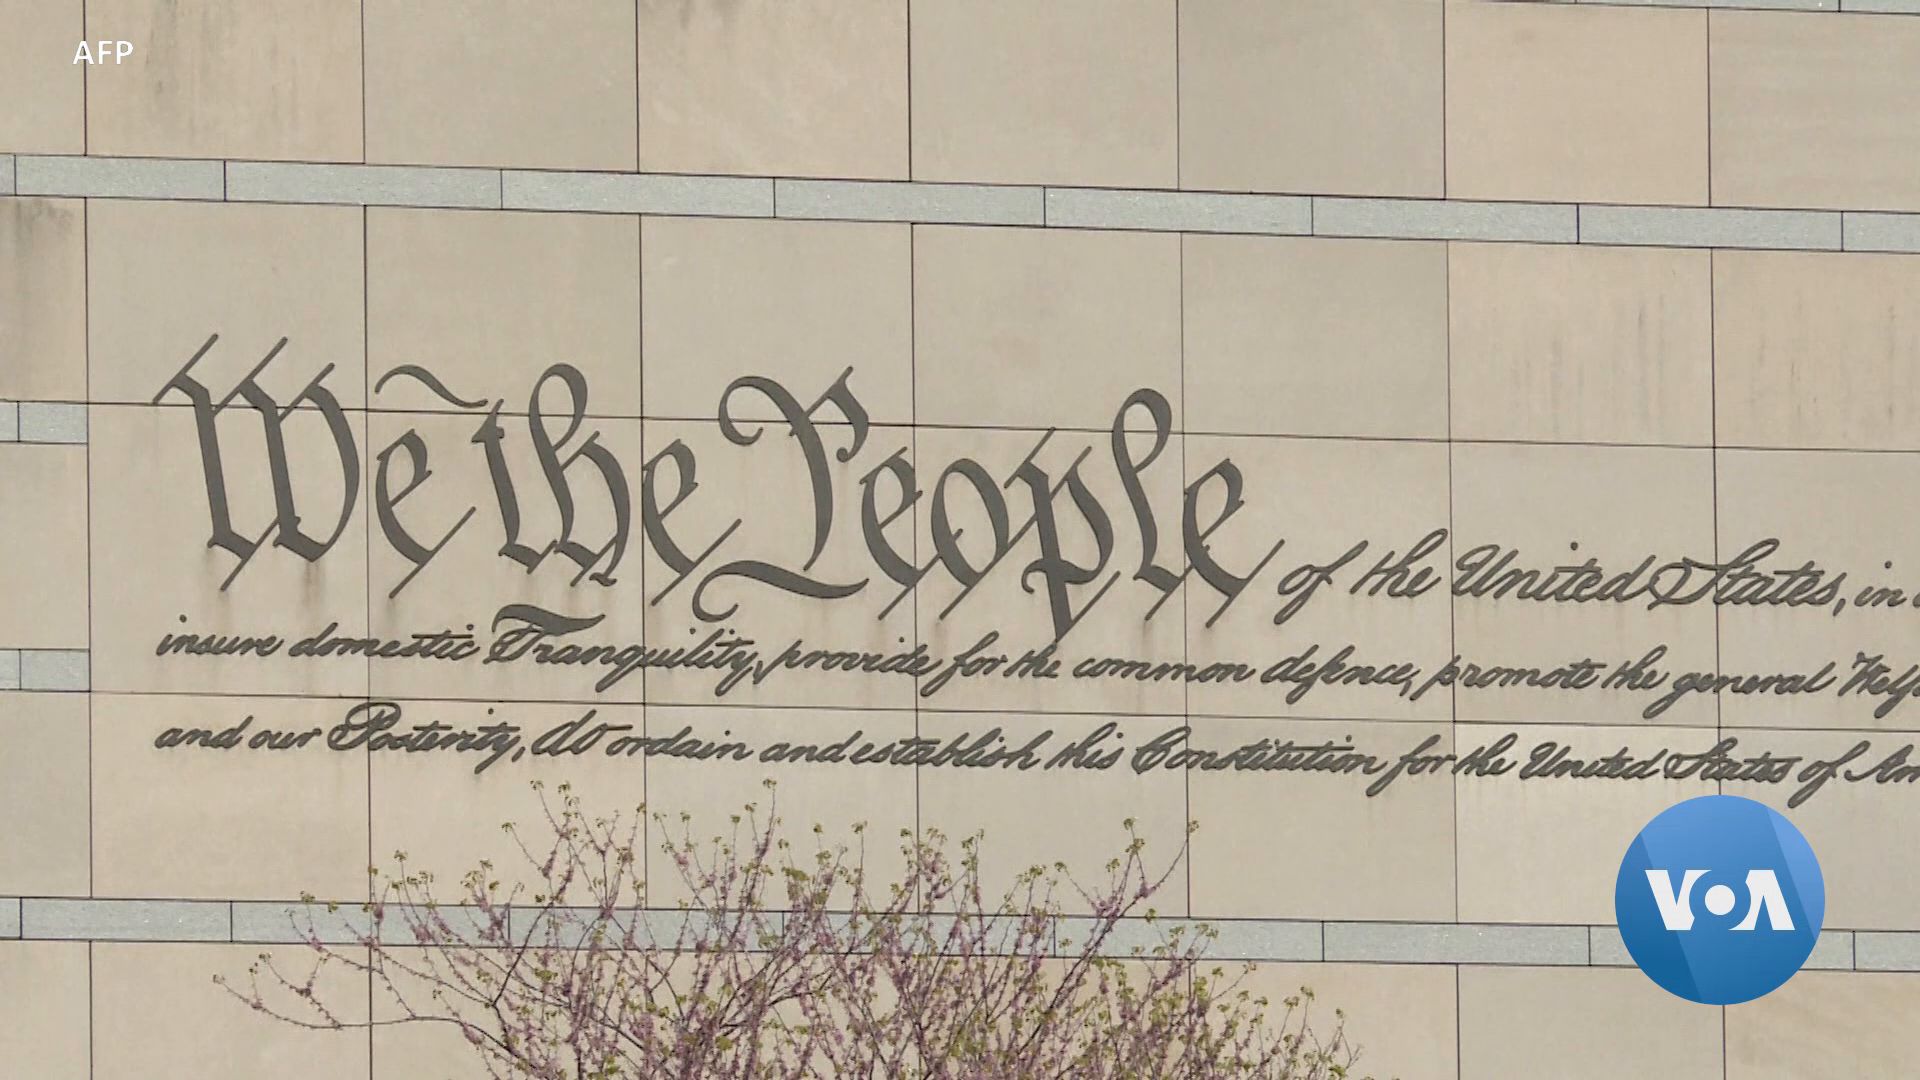 AFP
We the People of the United States, in
insure domestic Tranquility, provide for the common defence, promote the general
and our Posterity, do ordain and establish this Constitution for the United States of
VOA